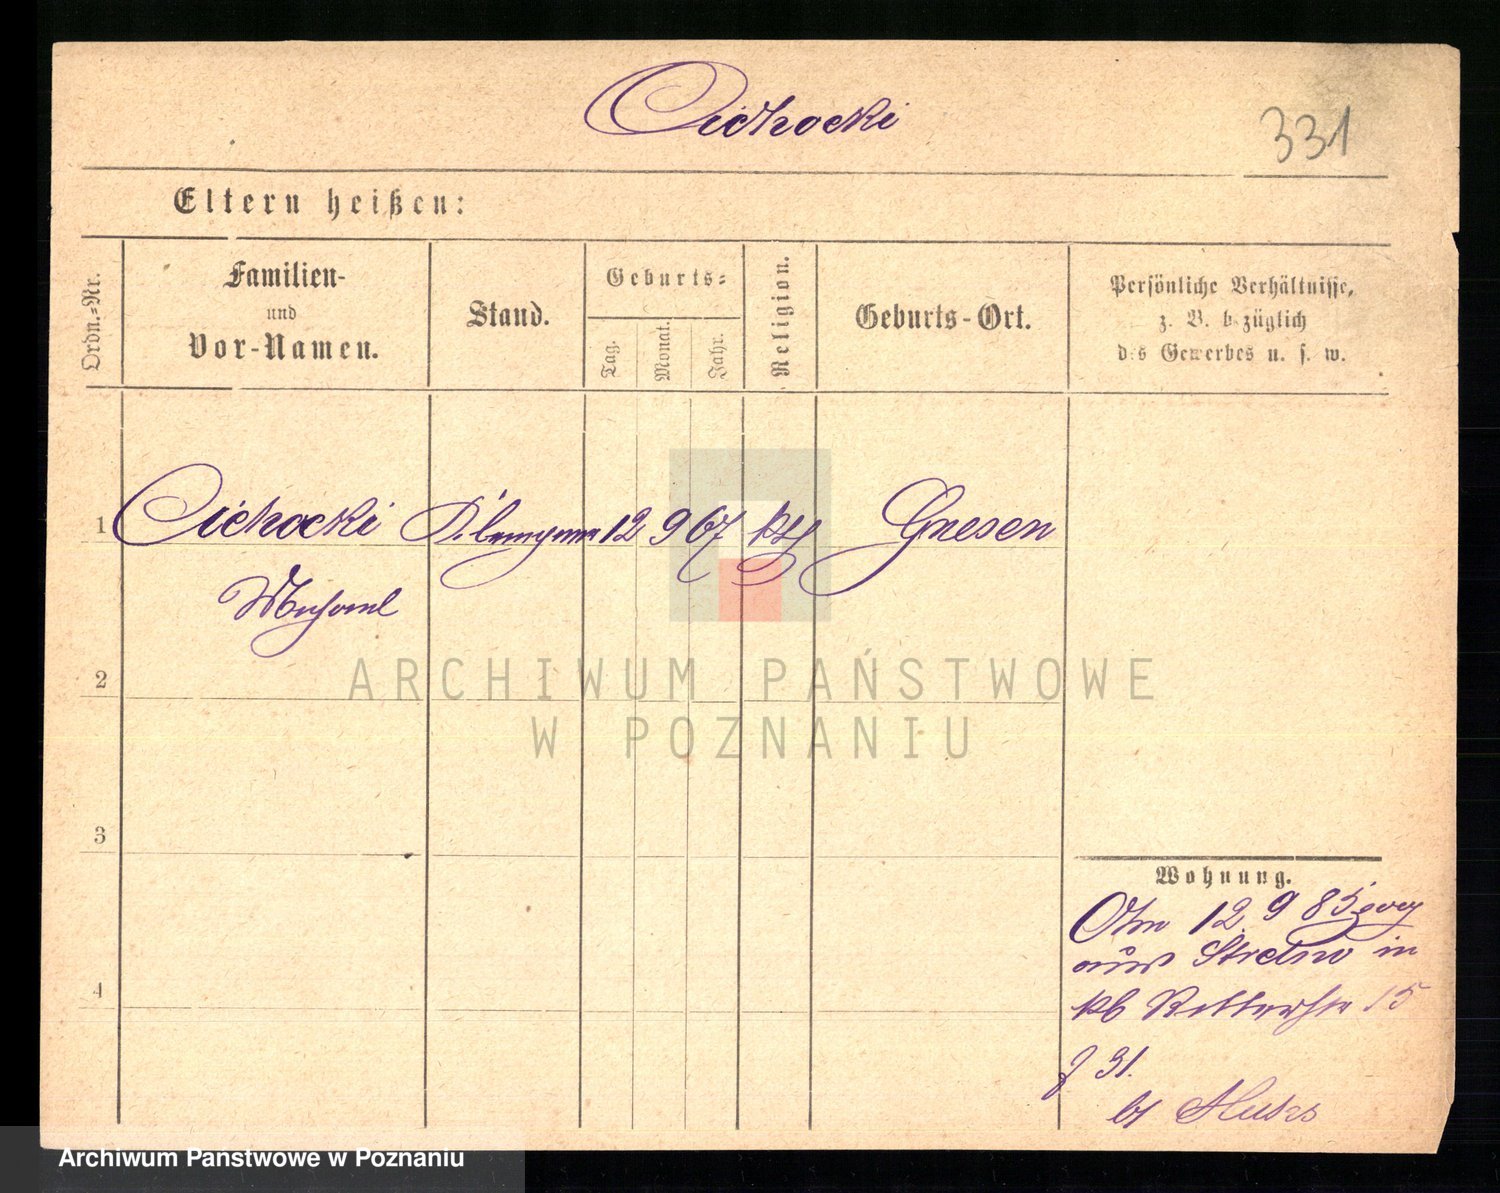 Cichocki
331
Eltern heißen:
Ordn.-Nr.
Familien-
und
Vor-Namen.
Stand.
Geburts-
Tag.
Monat.
Jahr.
Religion.
Geburts-Ort.
Persönliche Verhältnisse,
z. B. bezüglich
des Gewerbes u. s. w.
1 Cichocki 12 9 67 kth Gnesen
2
3
4
ARCHIWUM PAŃSTWOWE
W POZNANIU
Wohnung.
12. 9 85
aus Strelno in
Ritterstr 15
31.
Archiwum Państwowe w Poznaniu